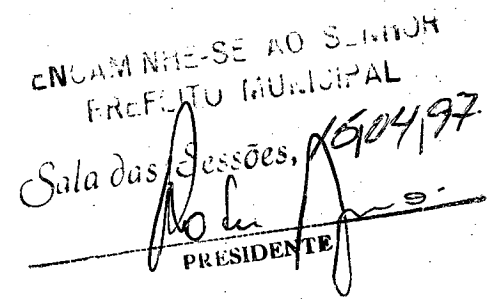 ENCAMINHE-SE AO SENHOR
PREFEITO MUNICIPAL
Sala das Sessões, /04/97
PRESIDENTE